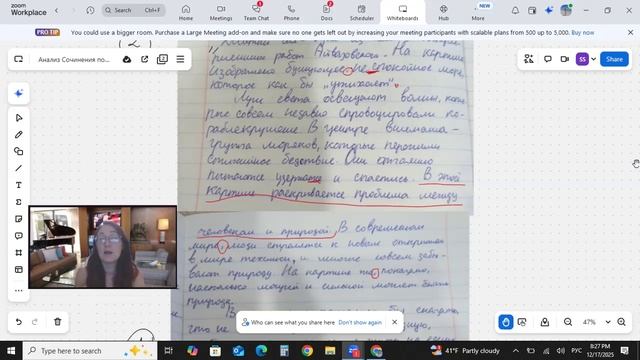 zoom
Workplace
Home
Meetings
Team Chat
Phone
Docs
Scheduler
Whiteboards
Hub
More
NEW
PRO TIP
You could use a bigger room. Purchase a Large Meeting add-on and make sure no one gets left out by increasing your meeting participants with scalable plans from 500 up to 5,000. Buy now
Анализ Сочинения по...
SS
Share
работ Айвазовского. На картине
изображено бушующее, не спокойное море,
которое как бы "утихает".
Лучи света освещают волны, кото-
рые совсем недавно спровоцировали ко-
раблекрушение. В центре внимания -
группа моряков, которые пережили
стихийное бедствие. Они отчаянно
пытаются и спастись. В этой
картине раскрывается проблема между
человеком и природой. В современном
мире, люди стремятся к новым открытиям
в мире техники, и многие совсем забы-
вают природу. На картине показано,
насколько мощной и сильной может быть
природа.
Who can see what you share here?
Don't show again
47%
Type here to search
41°F Partly cloudy
РУС
8:27 PM
12/17/2025